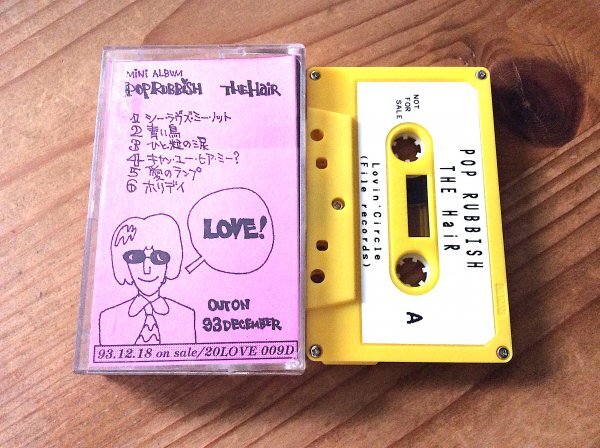 MiNi ALBUM
POP RUBBiSH THE HAiR
1 シー・ラヴズ・ミー・ノット
2 青い鳥
3 ひと粒の涙
4 キャン・ユー・ヒア・ミー?
5 愛のランプ
6 ホリデイ
LOVE!
OUT ON
93 DECEMBER
93.12.18 on sale/20LOVE 009D
NOT
FOR
SALE
POP RUBBISH
THE HAiR
Lovin' Circle
(File records)
A